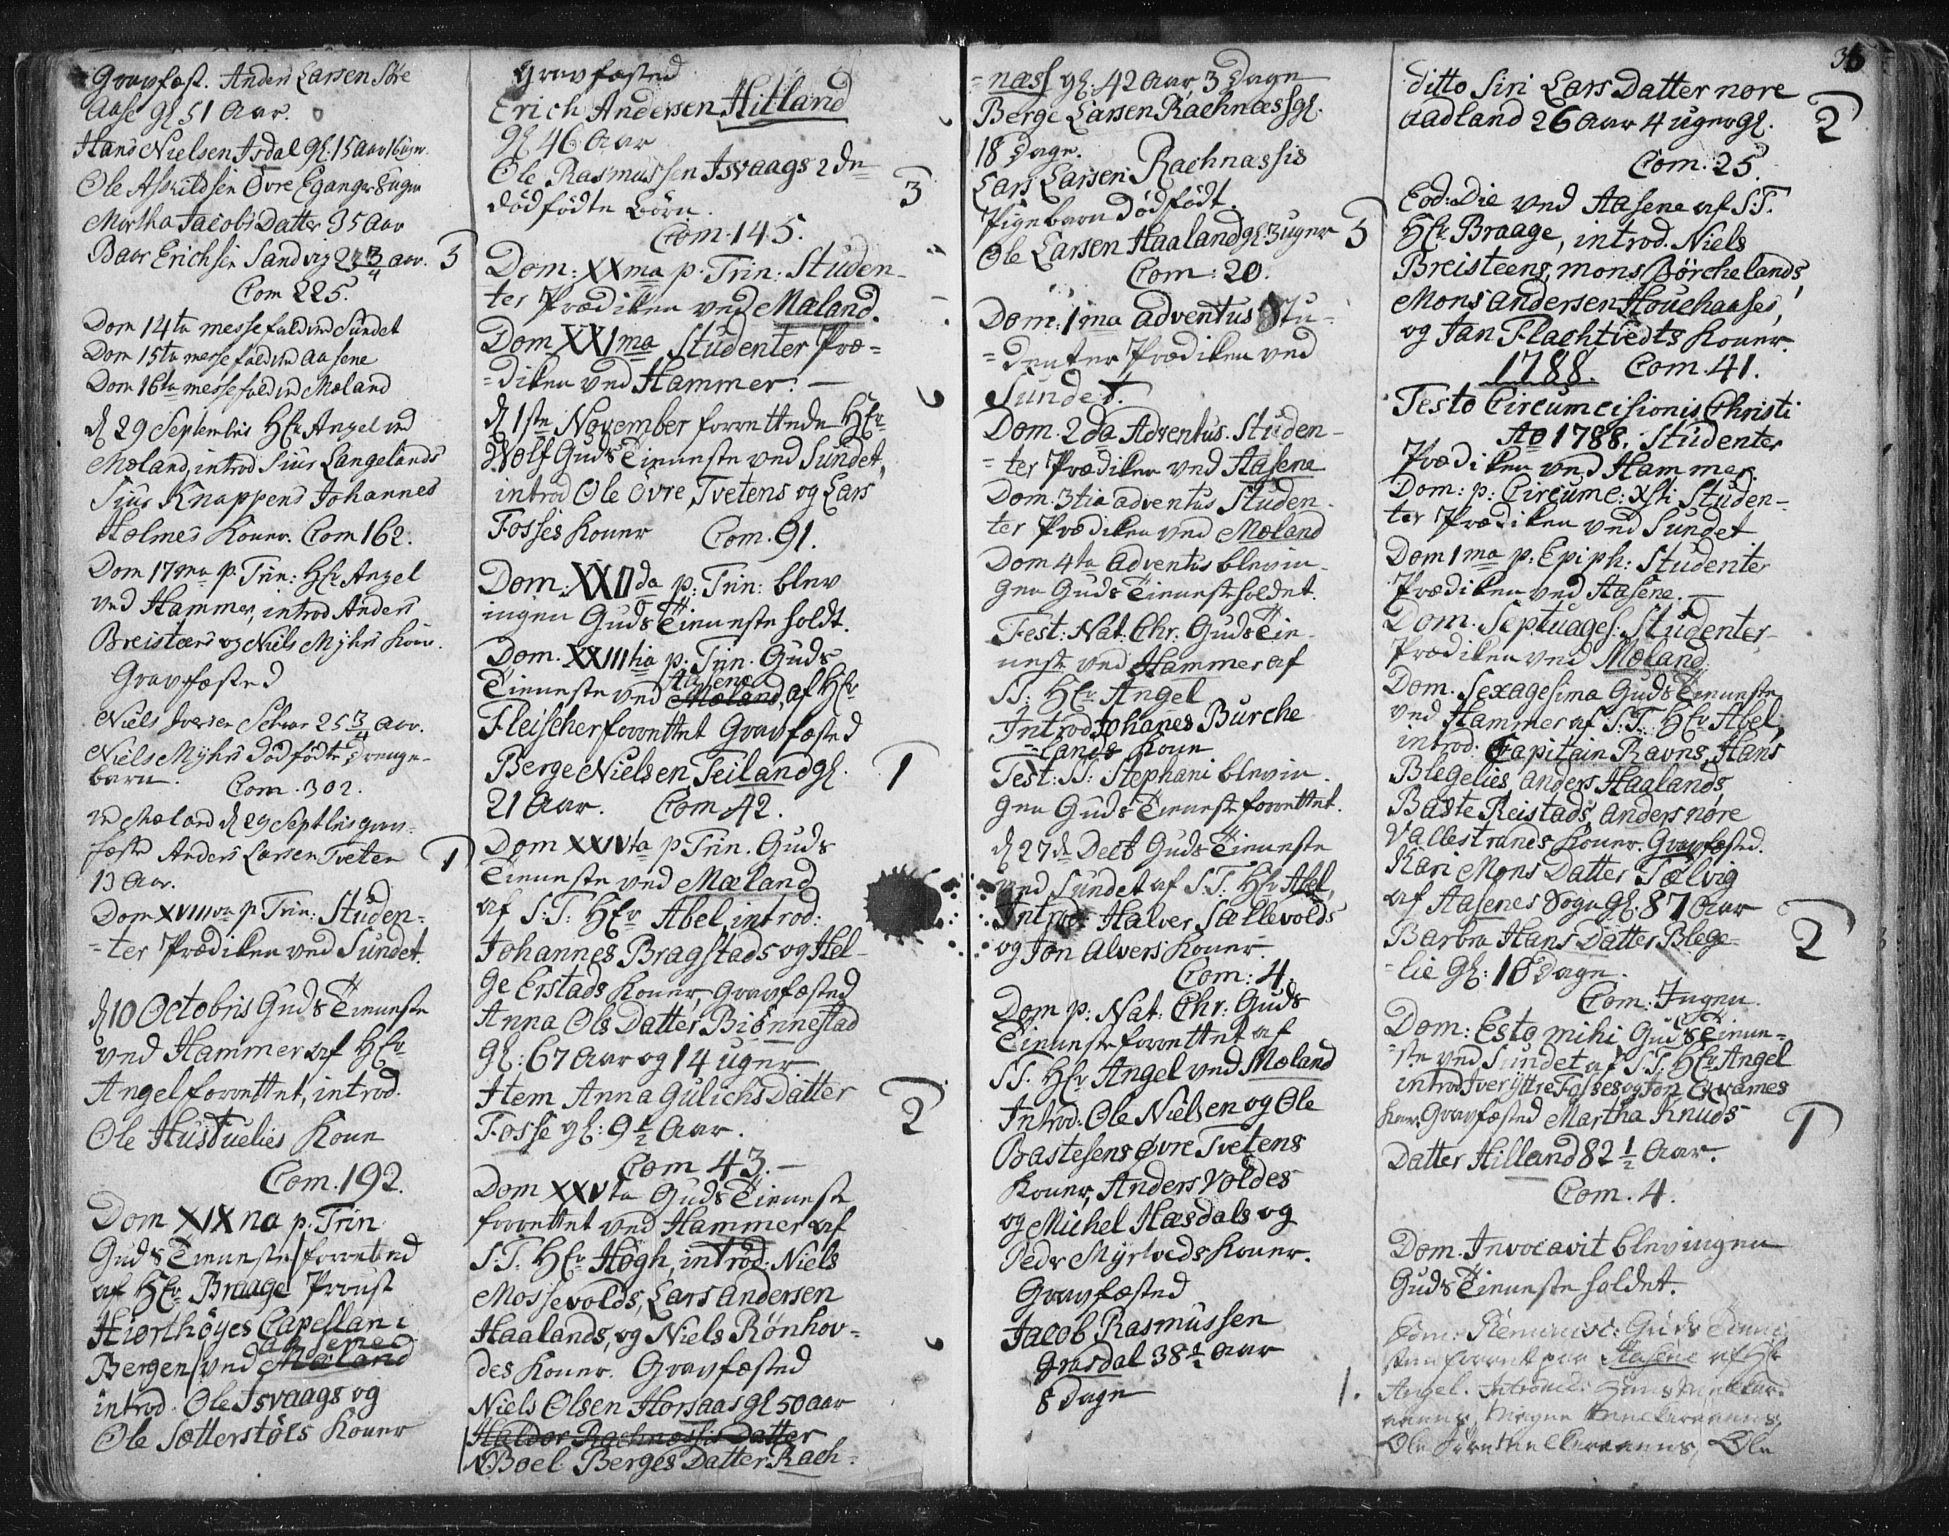 Gravfæst. Anders Larsen Söre
Aase gl 51 Aar.
Hans Nielsen Isdal gl. 15 Aar 16 uger.
Ole Askildsen Övre Eganger 8 uger
Martha Jacobs Datter 35 Aar
Baar Erichsen Sandvig 22 3/4 aar. 5
Com 225.
Dom 14ta messefald ved Sundet
Dom 15ta messefald ved Aasene
Dom 16ta messefald ved Mæland
d 29 Septembris Hr Angel ved
Mæland, introd Siur Langelands
Siur Knappens Johannes
Holmes Koner. Com 162.
Dom 17ma p. Trin: Hr Angel
ved Hammer, introd Anders
Breisteens og Niels Myhrs Kon.
Gravfæsted
Niels Iversen 25 3/4 Aar.
Niels Myhrs dödfödte drenge-
barn. Com. 302.
ved Mæland d 29 Septbris grav-
fæste Anders Larsen Tveten 1
13 Aar.
Dom XVIIIva p. Trin: Studen-
-ter Prædiken ved Sundet.
d 10 Octobris Guds Tieneste
ved Hammer af Hr
Angel forrettet, introd.
Ole Hustuelies Kone
Com. 192.
Dom XIX na p. Trin
Guds Tieneste forretted
af Hr Braage Provst
Hiorthöyes Capellan i
Aasene
Bergen ved Mæland
introd. Ole Isvaags og
Ole Sætterstöls Koner
Gravfæsted
Erich Andersen Hitland
gl 46 Aar
Ole Rasmussen Isvaags 2de
dödfödte Börn. 3
Com. 145.
Dom: XXma p. Trin. Studen-
ter Prædiken ved Mæland.
Dom XXIma Studenter Præ-
-diken ved Hammer. —
d 1ste November forrettede Hr
Wolf Guds Tieneste ved Sundet,
introd Ole Övre Tvetens og Lars
Fosses Koner Com. 91.
Dom. XXIIda p: Trin: blev
ingen Guds Tieneste holdt.
Dom. XXIIItia p: Trin. Guds
Aasene
Tieneste ved Mæland, af Hr
Fleischer forrettet Gravfæsted
Berge Nielsen Teiland gl. 1
21 Aar. Com 42.
Dom XXIVta p Trin. Guds
Tieneste ved Mæland
af S: T: Hr Abel, introd:
Johannes Bragstads og Hel-
ge Erstads Koner, Gravfæsted
Anna Ols Datter Biönnestad
gl: 67 Aar og 14 uger
Item Anna Gulichs Datter
Fosse gl: 9 1/2 Aar. 2
Com 43. —
Dom XXVta Guds Tieneste
forrettet ved Hammer af
S. T. Hr Høgh, introd: Niels
Mossevolds, Lars Andersen
Haalands, og Niels Rønhov-
des Koner. Gravfæsted
Niels Olsen Horsaas gl 50 aar
Haldor Rachnæssis Datter
Boel Berges Datter Rach-
-næss gl: 42 Aar, 3 Dage
Berge Larsen Rachnæss gl.
18 Dage.
Lars Larsen Rachnæssis
Pigebarn dödfödt.
Ole Larsen Haaland gl 3 uger 5
Com: 20.
Dom: 1ma adventus Stu-
-denter Prædiken ved
Sundet.
Dom. 2da Adventus. Studen-
-ter Prædiken ved Aasene
Dom. 3tia adventus Studen-
ter Prædiken ved Mæland
Dom 4ta Adventus blev in-
gen Guds Tieneste holdet.
Fest: Nat: Chr. Guds Tie-
neste ved Hammer af
S. T: Hr Angel
Introd Johanes Burche
-lands Kone
Fest: St: Stephani blev in-
gen Guds Tieneste forrettet.
d 27de Decb Guds Tieneste
ved Sundet af S. T: Hr Abel,
Introd: Halver Sællevolds
og Jon Alvers Koner.
Com: 4.
Dom p: Nat: Chr: Guds
Tieneste forrettet af
S. T. Hr Angel ved Mæland
Introd. Ole Nielsen og Ole
Bastesens Øvre Tvetens
Koner, Anders Voldes
og Michel Hæsdals og
Peder Myrlveds Koner.
Gravfæsted
Jacob Rasmussen
Græsdal 38 1/2 Aar
8 Dage 1.
36
Ditto Siri Lars Datter nore
Aadland 26 Aar 4 uger gl. 2
Com. 25.
Eod: Die ved Aasene af S. T.
Hr Braage, introd. Niels
Breisteens, mons Börchelands,
Mons Andersen Houehaases,
og Jan Flachtvedts Koner.
1788. Com. 41.
Festo Circumcisionis Christi
Ao 1788. Studenter
Prædiken ved Hammer.
Dom: p: Circumc: Xsti Studen-
ter Prædiken ved Sundet
Dom 1ma p: Epiph: Studenter
Prædiken ved Aasene. —
Dom. Septuages: Studenter
Prædiken ved Mæland.
Dom. Sexagesima Guds Tieneste
ved Hammer af S. T. Hr Abel,
introd: Capitain Ravns, Hans
Blegelies, Anders Haalands
Baste Reistads, Anders nöre
Vallestrands Koner. Gravfæsted.
Kari Mons Datter Tælvig
af Aasenes Sogn gl. 87 Aar
Barbra Hans Datter Blege- 2
-lie gl: 10 Dage.
Com: Ingen.
Dom: Esto mihi Guds Tiene-
-ste ved Sundet af S. T. Hr Angel
introd Iver yttre Fosses og Jon Qvames
Kon. Gravfæsted Martha Knuds 1
Datter Hilland 82 1/2 Aar.
Com. 4.
Dom. Invocavit blev ingen
Guds Tieneste holdet.
Dom: Reminisc: Guds Tiene
sten forrett paa Aasene af Hr
Angel. Introd:
Magne
Ole Ole